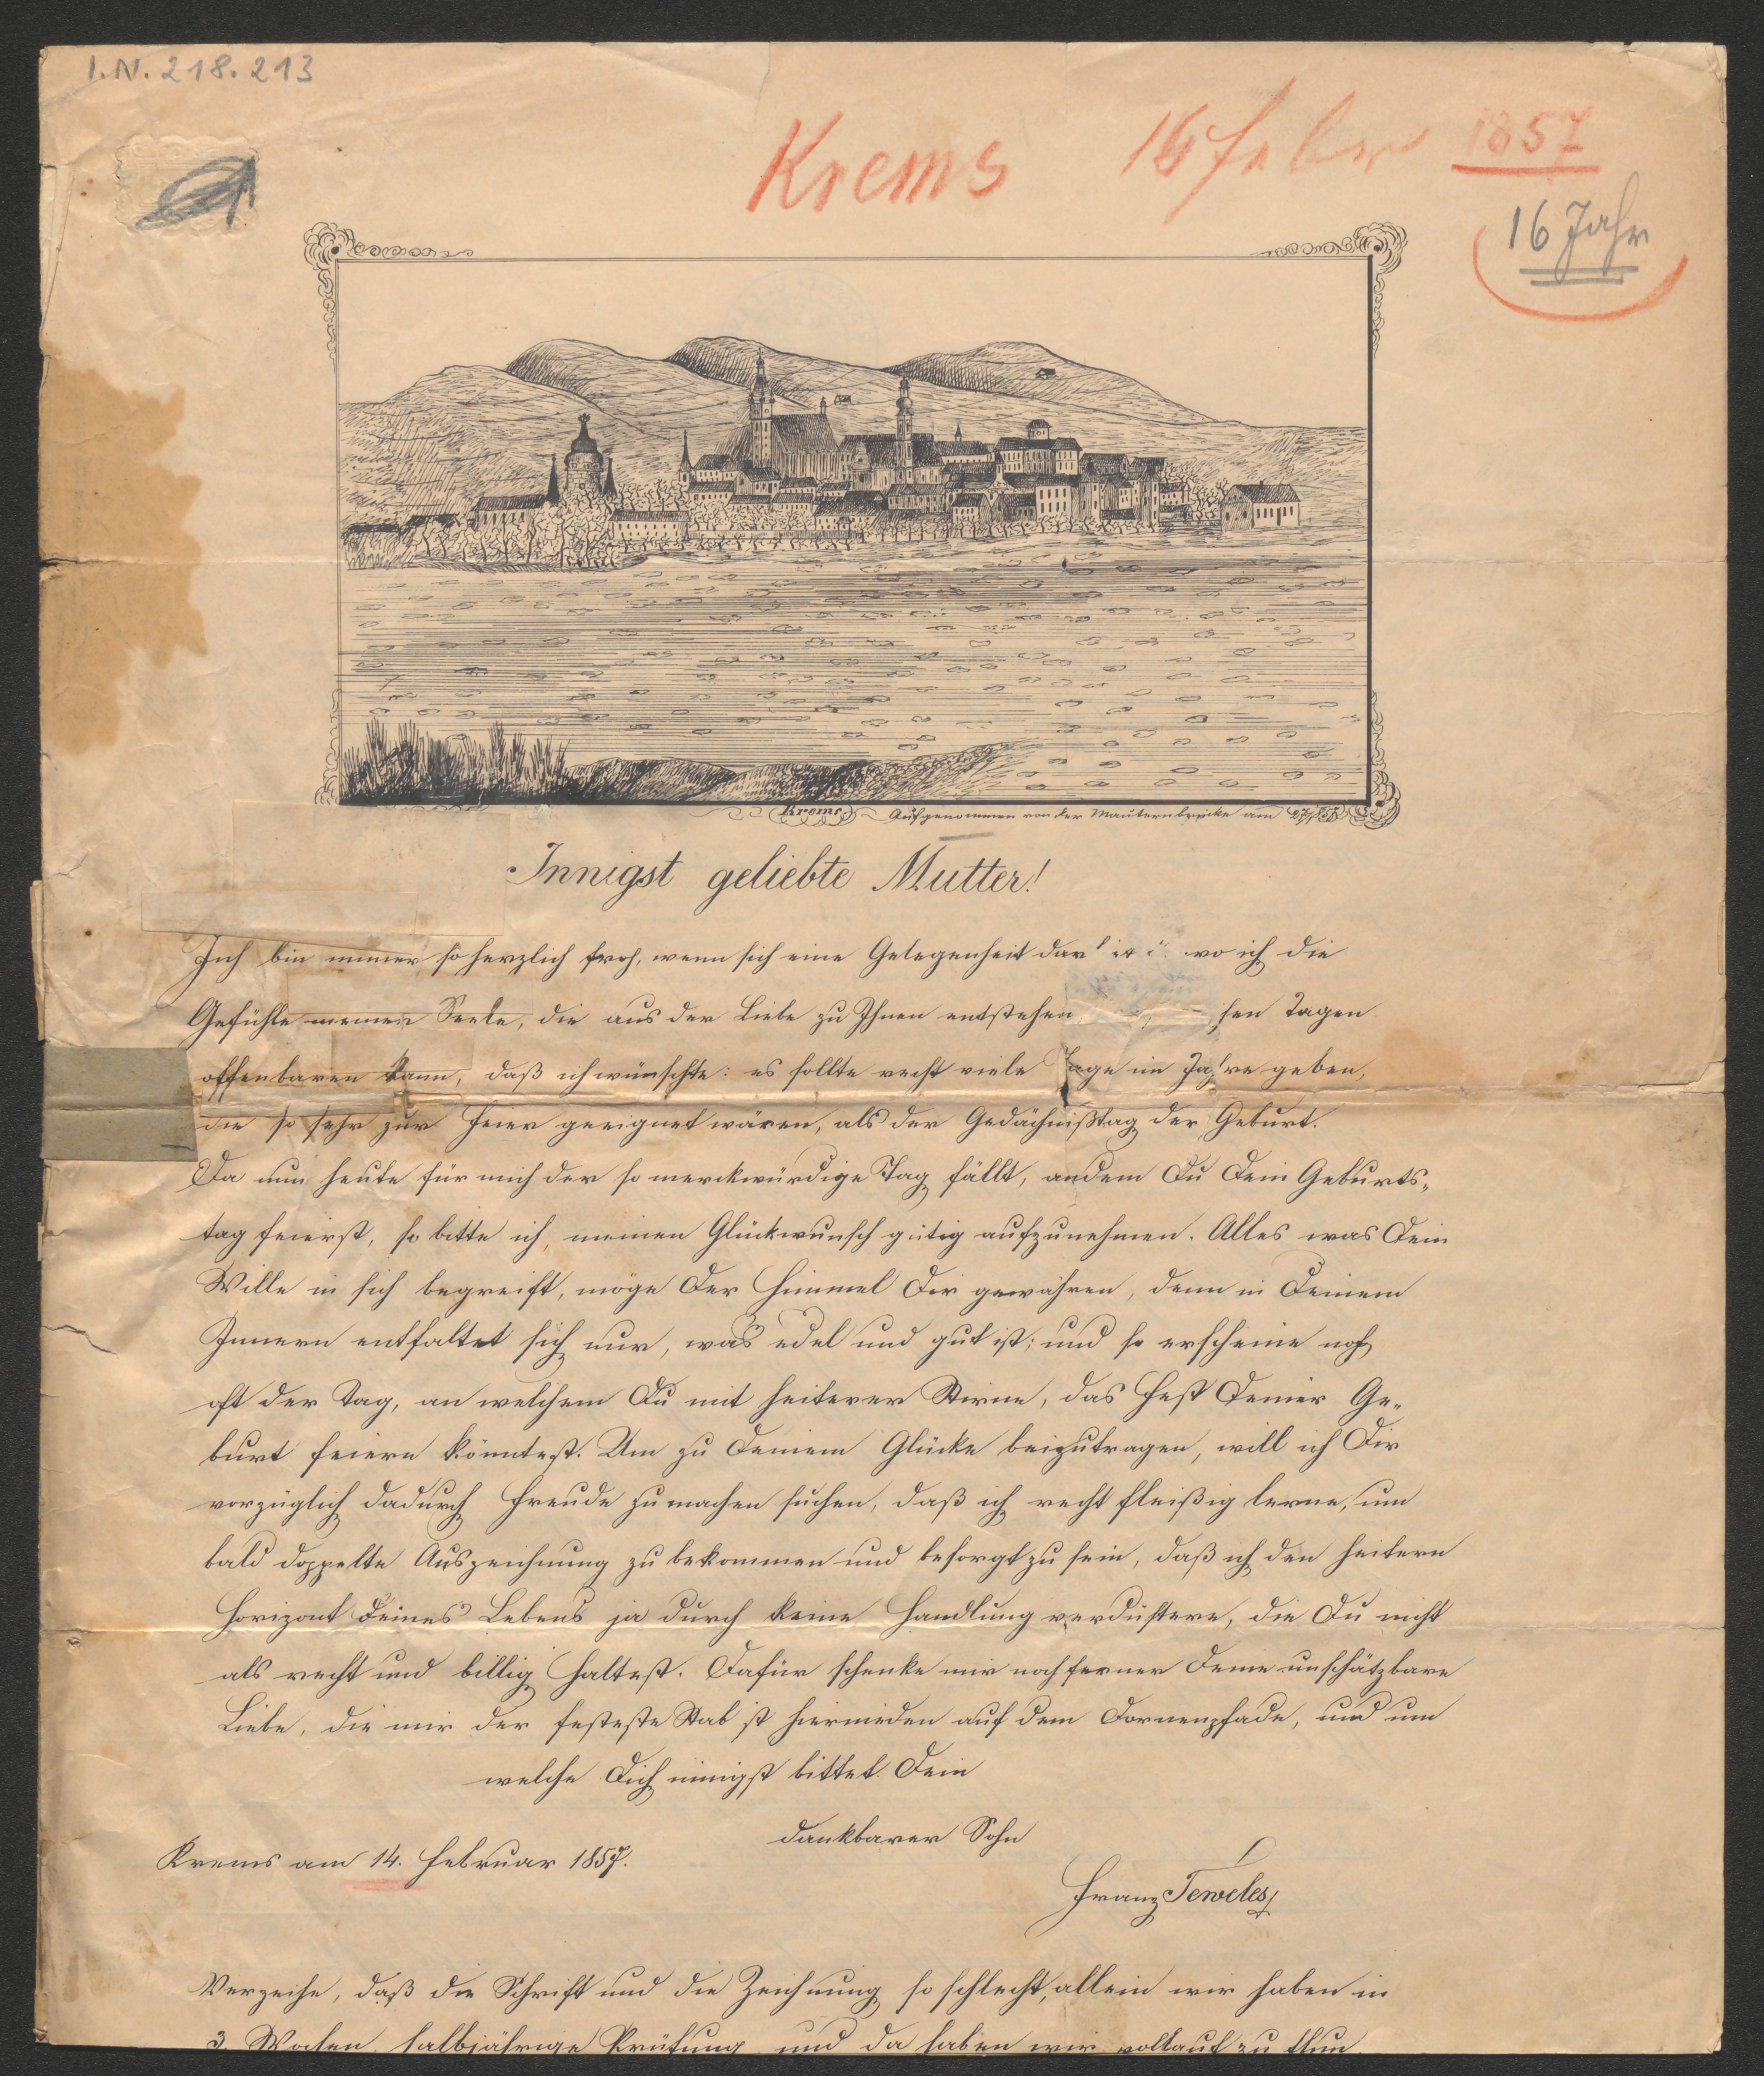 I.N. 218.213
Krems 16 Febr 1857
16 Jahr
Krems. Aufgenommen von der Mauternbrücke am
Innigst geliebte Mutter!
Ich bin immer so herzlich froh, wenn sich eine Gelegenheit dar wo ich die
Gefühle meiner Seele, die aus der Liebe zu Ihnen entstehen sen Tagen
offenbaren kann, daß ich wünschte: es sollte recht viele Tage im Jahre geben,
die so sehr zur Feier geeignet wären, als der Gedächnißtag der Geburt.
Da nun heute für mich der so merckwürdige Tag fällt, andem Du Dein Geburts„
tag feierst, so bitte ich, meinen Glückwunsch gütig aufzunehmen. Alles was Dein
Wille in sich begreift, möge Der Himmel Dir gewähren, denn in Deinem
Innern entfaltet sich nur, was edel und gut ist; und so erscheine noch
oft der Tag, an welchem Du mit heiterer Stirne, das Fest Deiner Ge„
burt feiern könntest. Um zu Deinem Glücke beizutragen, will ich Dir
vorzüglich dadurch Freude zu machen suchen, daß ich recht fleißig lerne, um
bald doppelte Auszeichnung zu bekommen und besorgt zu sein, daß ich den heitern
Horizont Deines Lebens ja durch keine Handlung verdüstere, die Du nicht
als recht und billig haltest. Dafür schenke mir noch ferner Deine unschätzbare
Liebe, die mir der festeste Stab ist hiernieden auf dem Dornenpfade, und um
welche Dich innigst bittet. Dein
dankbarer Sohn
Krems am 14. Februar 1857.
Franz Teweles
Verzeihe, daß die Schrift und die Zeichnung so schlecht, allein wir haben in
3 Wochen halbjährige Prüfung und da haben wir vollauf zu thun.